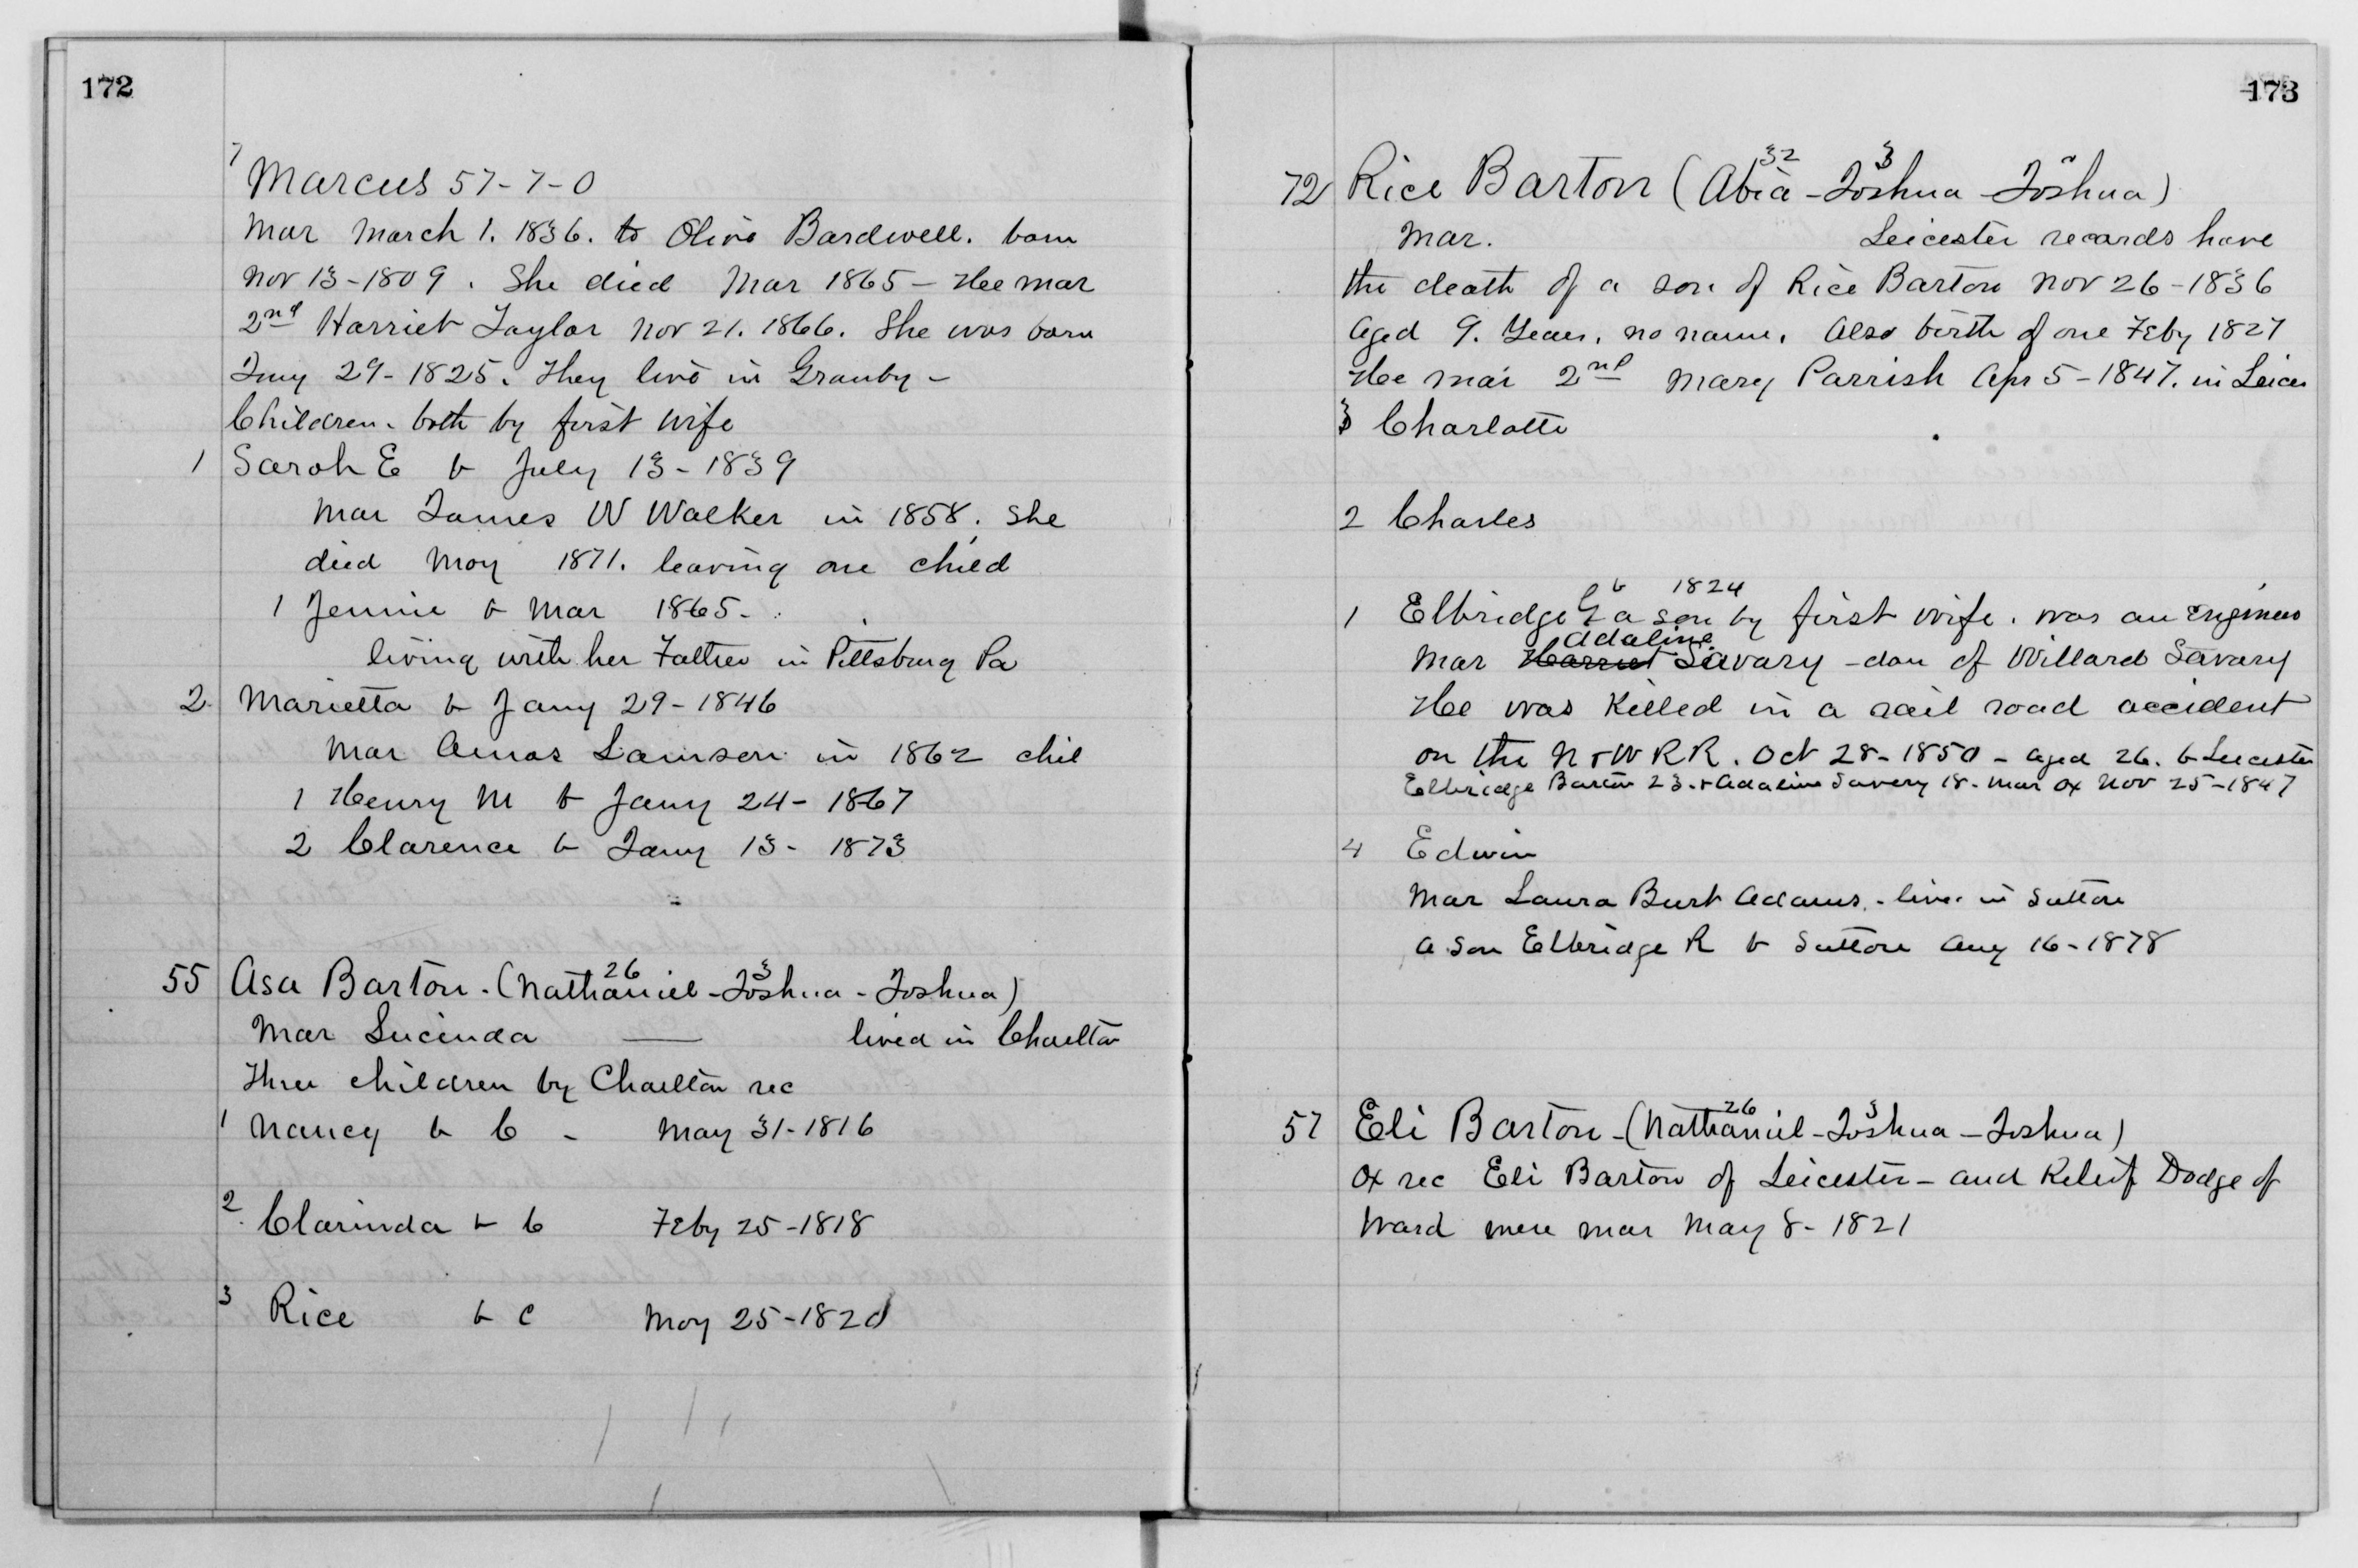 172
7
Marcus 57-7-0
Mar March 1. 1836. to Olive Bardwell. born
Nov 13-1809. She died Mar 1865 - He mar
2nd Harriet Taylor Nov 21. 1866. She was born
29-1825. They live in Granby -
Children. both by first wife
1 Sarah E b July 13-1839
Mar James W Walker in 1858. She
died May 1871. leaving one child
1 Jennie b Mar 1865.
living with her Father in Pittsburg Pa
2 Marietta b Jany 29-1846
Mar Amos Lamson in 1862 chil
1 Henry M b Jany 24-1867
2 Clarence b Jany 13-1873
55 Asa Barton. (Nathaniel 26 - Joshua 3 - Joshua)
Mar Lucinda — lived in Charlton
Three children by Charlton rec
1 Nancy b C - May 31-1816
2 Clarinda b C Feby 25-1818
3 Rice b C May 25-1820
173
72 Rice Barton (Abia 32 - Joshua 3 - Joshua)
Mar. Leicester records have
the death of a son of Rice Barton Nov 26-1836
aged 9. Years. no name. Also birth of one Feby 1827
He mar 2nd Mary Parrish Apr 5-1847. in Leices
3 Charlotte
2 Charles
b 1824
1 Elbridge G a son by first wife. was an Engineer
Adaline
Mar Harriet Savary - dau of Willard Savary
He was Killed in a rail road accident
on the N & W R R. Oct 28-1850 - aged 26. b Leicester
Elbridge Barton 23. & Adaline Savery 18. mar Ox Nov 25-1847
4 Edwin
Mar Laura Burt Adams. - live in Sutton
a son Elbridge R b Sutton Aug 16-1878
57 Eli Barton - (Nathaniel 26 - Joshua 3 - Joshua)
Ox rec Eli Barton of Leicester - and Relief Dodge of
Ward were mar May 8-1821